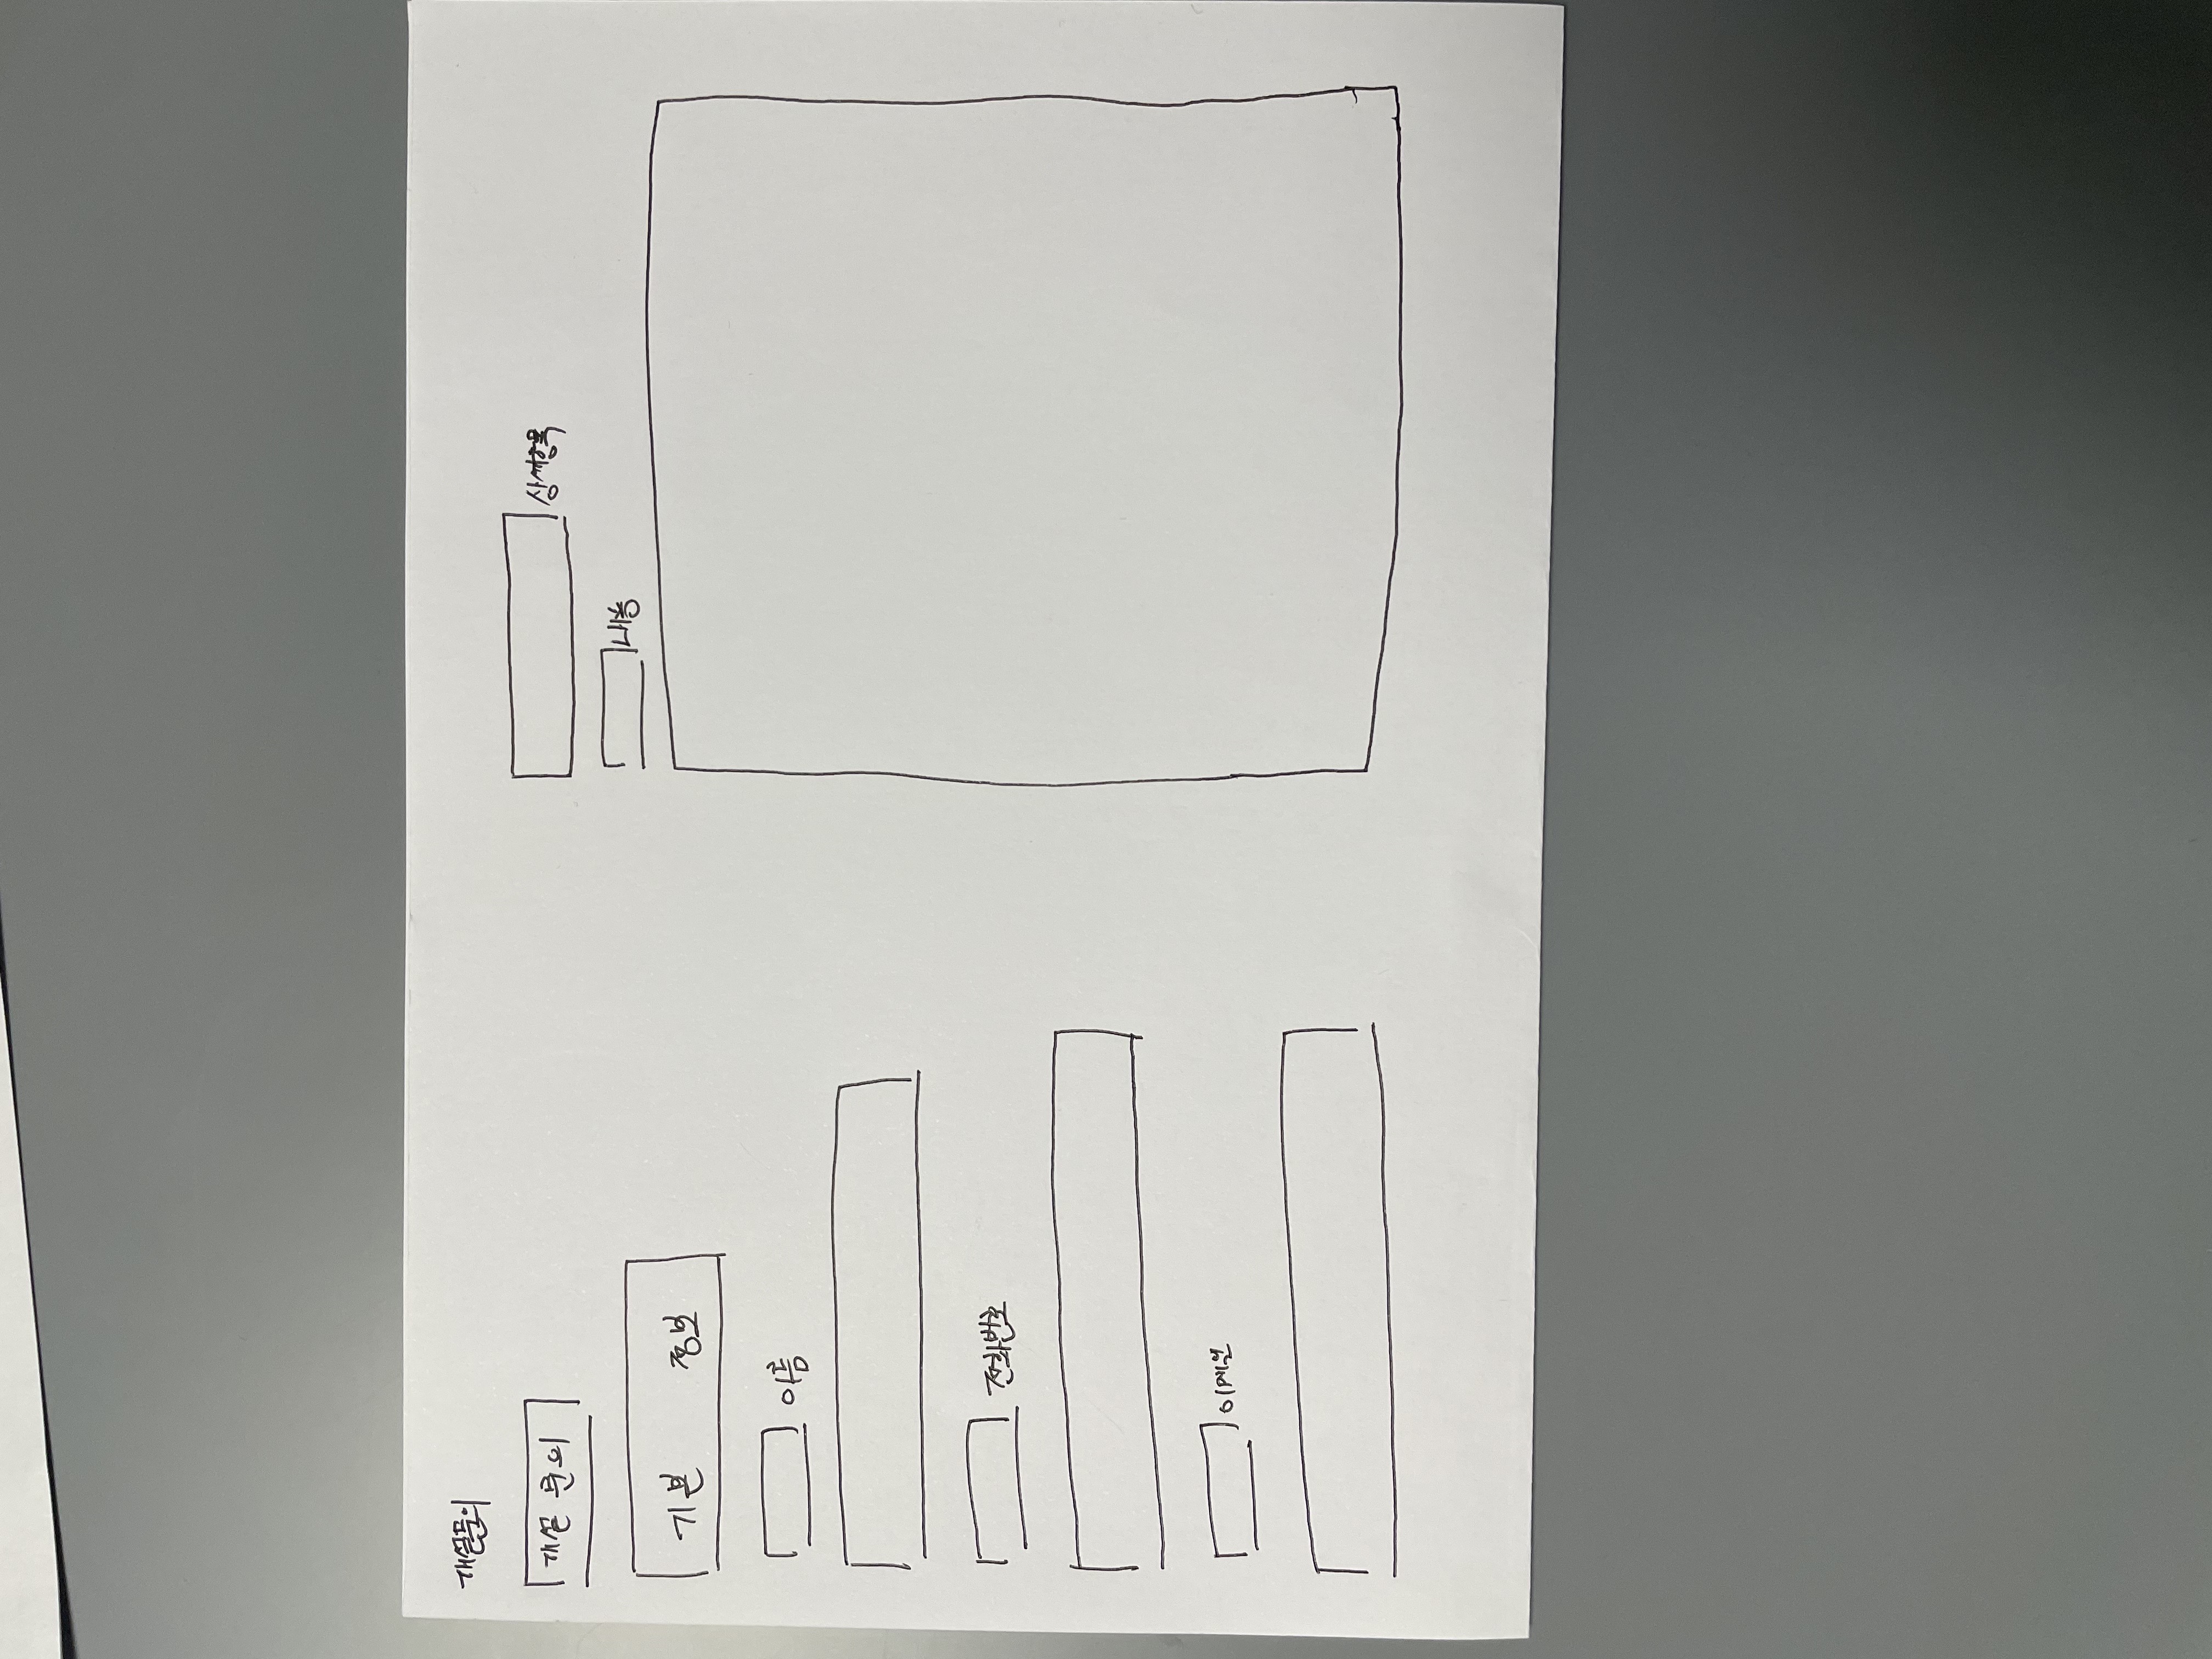 개설문의
개설 문의
기본 정보
이름
전화번호
이메일
상세항목
내용